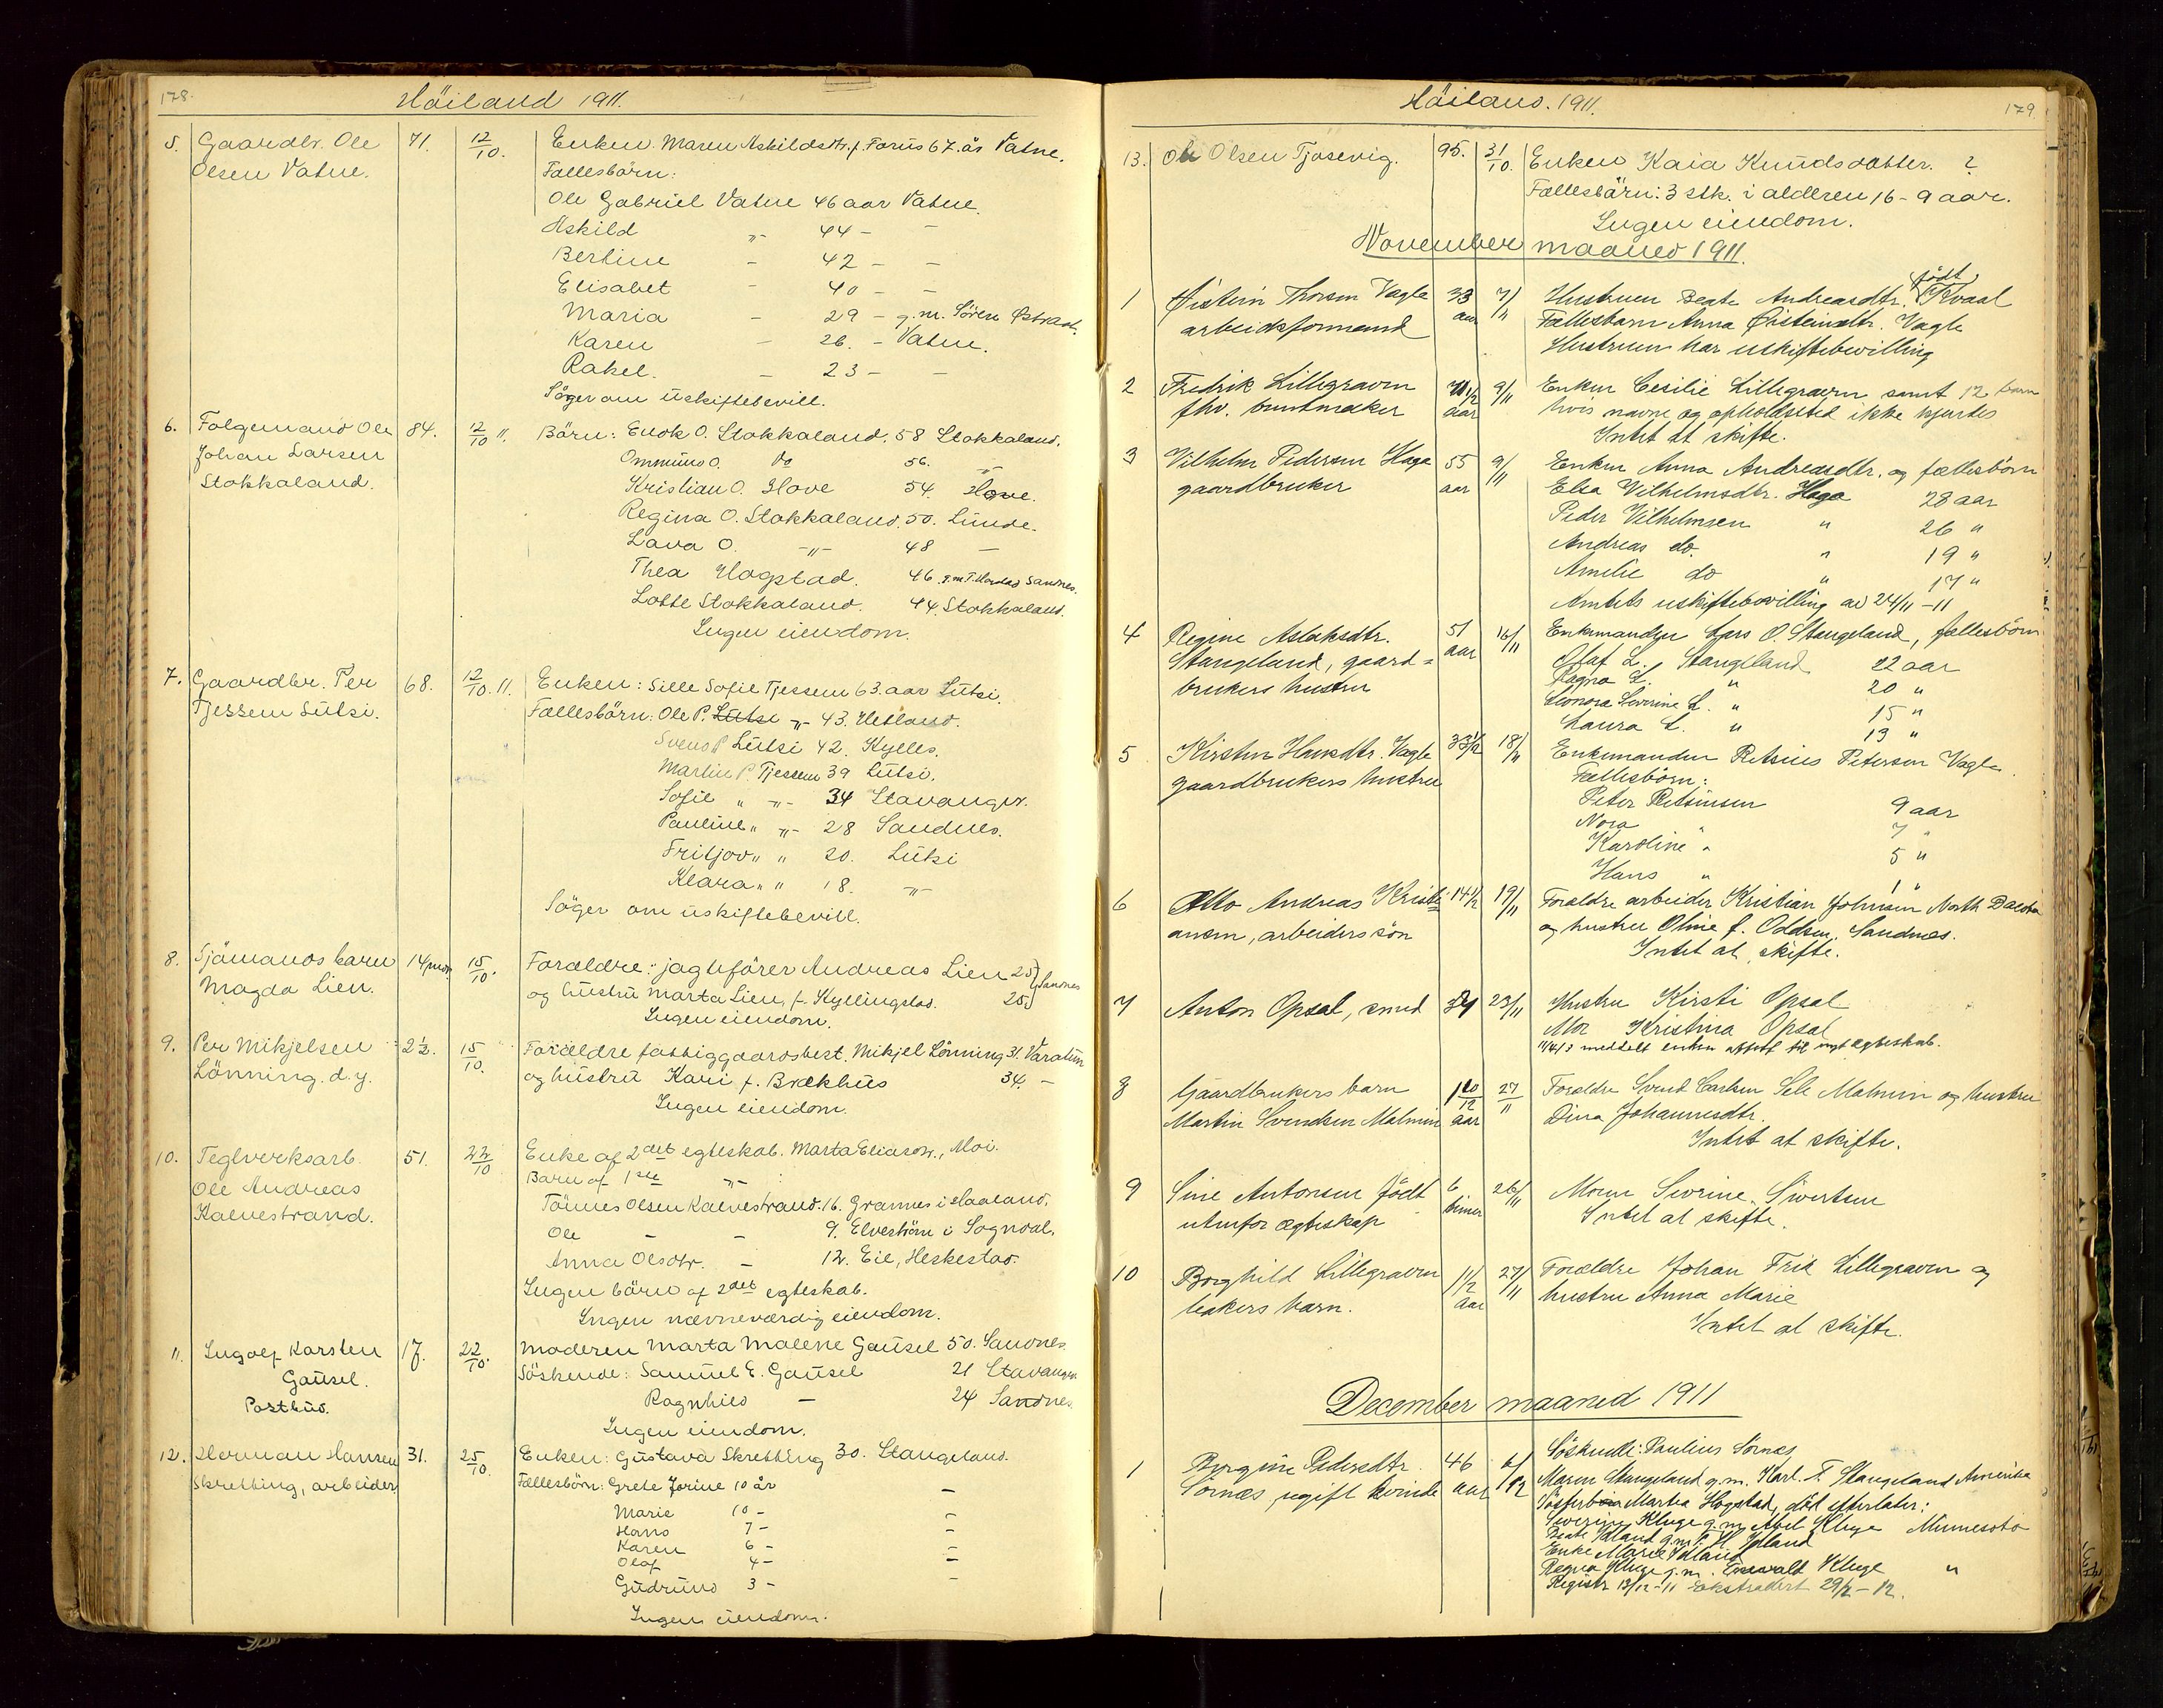 178.
Höiland 1911.
5. Gaardbr. Ole 71. 12/10. Enken Maren Askildsdtr. f. Forus 67 år Vatne.
Olsen Vatne. Fællesbörn:
Ole Gabriel Vatne 46 aar Vatne.
Askild " 44 - -
Bertine - 42 - -
Elisabet - 40 - -
Maria - 29 - g.m. Sören
Karen - 26. - Vatne.
Rakel. - 23 - -
Söger om uskiftebevill.
6. Folgemand Ole 84. 12/10 11. Börn: Enok O. Stokkaland. 58 Stokkaland.
Johan Larsen Ommuns O. Do 56. "
Stokkaland. Kristian O. Hove 54. Hove.
Regina O. Stokkaland. 50. Lunde.
Lava O. -"- 48 -
Thea Hogstad. 46. g.m. T. Hogstad Sandnes.
Lotte Stokkaland. 44. Stokkaland.
Ingen eiendom.
7. Gaardbr. Per 68. 12/10. 11. Enken: Sille Sofie Tjessem 63. aar Lutsi.
Tjessem Lutsi. Fællesbörn: Ole P. Lutsi -"- 43. Hetland.
Svend P. Lutsi 42. Kylles.
Martin P. Tjessem 39 Lutsi.
Sofie " -"- 34 Stavanger.
Pauline " -"- 28 Sandnes.
Fritjov " " 20. Lutsi
Klara " " 18. -"-
Söger om uskiftebevill.
8. Sjömands barn 14 mdr. 15/10. Forældre: jagtförer Andreas Lien 25 } Sandnes
Magda Lien. og hustru Marta Lien, f. Kyllingstad. 25. }
Ingen eiendom.
9. Per Mikjelsen 2½. 15/10. Forældre fattiggaardsbest. Mikjel Lönning 31. Varatun
Lönning d.y. og hustru Kari f. Brækhus 34. -
Ingen eiendom.
10. Teglverksarb. 51. 22/10 Enke af 2det egteskab. Marta Eliasdtr., Moi.
Ole Andreas Barn af 1ste -"- :
Kalvestrand. Tönnes Olsen Kalvestrand. 16. Grannes i Haaland.
Ole - - 9. Elveström i Sogndal.
Anna Olsdtr. - 12. Eie, Heskestad.
Ingen börn af 2det egteskab.
Ingen nævneværdig eiendom.
11. Ingolf Karsten 17. 22/10. Moderen Marta Malene Gausel 50. Sandnes.
Gausel. Söskende: Samuel E. Gausel 21 Stavanger
Postbud. Ragnhild - 24 Sandnes.
Ingen eiendom.
12. Herman Hansen 31. 25/10. Enken: Gustava Skretting 30. Stangeland.
Skretting, arbeider Fællesbörn: Grete Jorine 10 år -
Marie 10 - -
Hans 7 - -
Karen 6 - -
Olaf 4 - -
Gudrund 3 - -
Ingen eiendom.
179
Höiland. 1911.
13. Ole Olsen Tjosevig. 95. 31/10. Enken Kaia Knudsdatter. ?
Fællesbörn: 3 stk. i alderen 16 - 9 aar.
Ingen eiendom.
November maaned 1911.
1 Øistein Thorsen Vagle 33 aar 7/11 Hustruen Beate Andreasdtr. født Kvaal
arbeidsformand Fællesbarn Anna Øisteinsdtr. Vagle
Hustruen har uskiftebevilling
2 Fredrik Lillegraven 71½ aar 9/11 Enken Cesilie Lillegraven samt 12 barn
fhv. buntmaker hvis navne og opholdssted ikke kjendes
Intet at skifte.
3 Vilhelm Pedersen Haga 55 aar 9/11 Enken Anna Andreasdtr. og fællesbörn
gaardbruker Elsa Vilhelmsdtr. Haga 28 aar
Peder Vilhelmsen " 26 "
Andreas do. " 19 "
Amelie do " 17 "
Amtets uskiftebevilling av 24/11 - 11
4 Regine Aslaksdtr. 51 aar 16/11 Enkemanden Lars O. Stangeland, fællesbörn
Stangeland, gaard= Olaf L. Stangeland 22 aar
brukers hustru Ragna L. " 20 "
Leonora Severine L. " 15 "
Laura L. " 13 "
5 Kirsten Hansdtr. Vagle 33½ 18/11 Enkemanden Retsius Petersen Vagle
gaardbrukers hustru Fællesbörn:
Peter Retsiusen 9 aar
Nora " 7 "
Karoline " 5 "
Hans " 1 "
6 Otto Andreas Kristi= 14½ 19/11 Foraldre arbeider Kristian Johnsen North Dacota
ansen, arbeiders sön og hustru Oline f. Oddsen, Sandnes.
Intet at skifte.
7 Anton Opsal, smed 34 23/11 Hustru Kirsti Opsal
Mor Kristina Opsal
11/4 13 meddelt enken attest til nyt egteskab.
8 Gaardbrukers barn 1 10/12 aar 27/11 Foraldre Svend Carlsen Sele Malmin og hustru
Martin Svendsen Malmin Dina Johannesdtr.
Intet at skifte.
9 Sine Antonsen födt 6 timer 26/11 Moren Severine Sivertsen
utenfor ægteskap Intet at skifte.
10 Borghild Lillegraven 1½ aar 27/11 Forældre Johan Frik Lillegraven og
bakers barn. hustru Anna Marie
Intet at skifte.
December maaned 1911
1 Bergine Pedersdtr. 46 aar /12 Söskende: Paulius Sörnes
Sornes, ugift kvinde Maren Stangeland g.m. Karl. F. Stangeland Amerika
Söster Martea Hogstad, död efterlater:
Severine Kluge g.m. Abel Kluge Minnesota
Beate Ydland g.m. P. H. Ydland
Enke Marie Ydland
Regna Kluge g.m. Kluge "
Registr 13/12 - 11 Ekstradert 29/2 - 12.